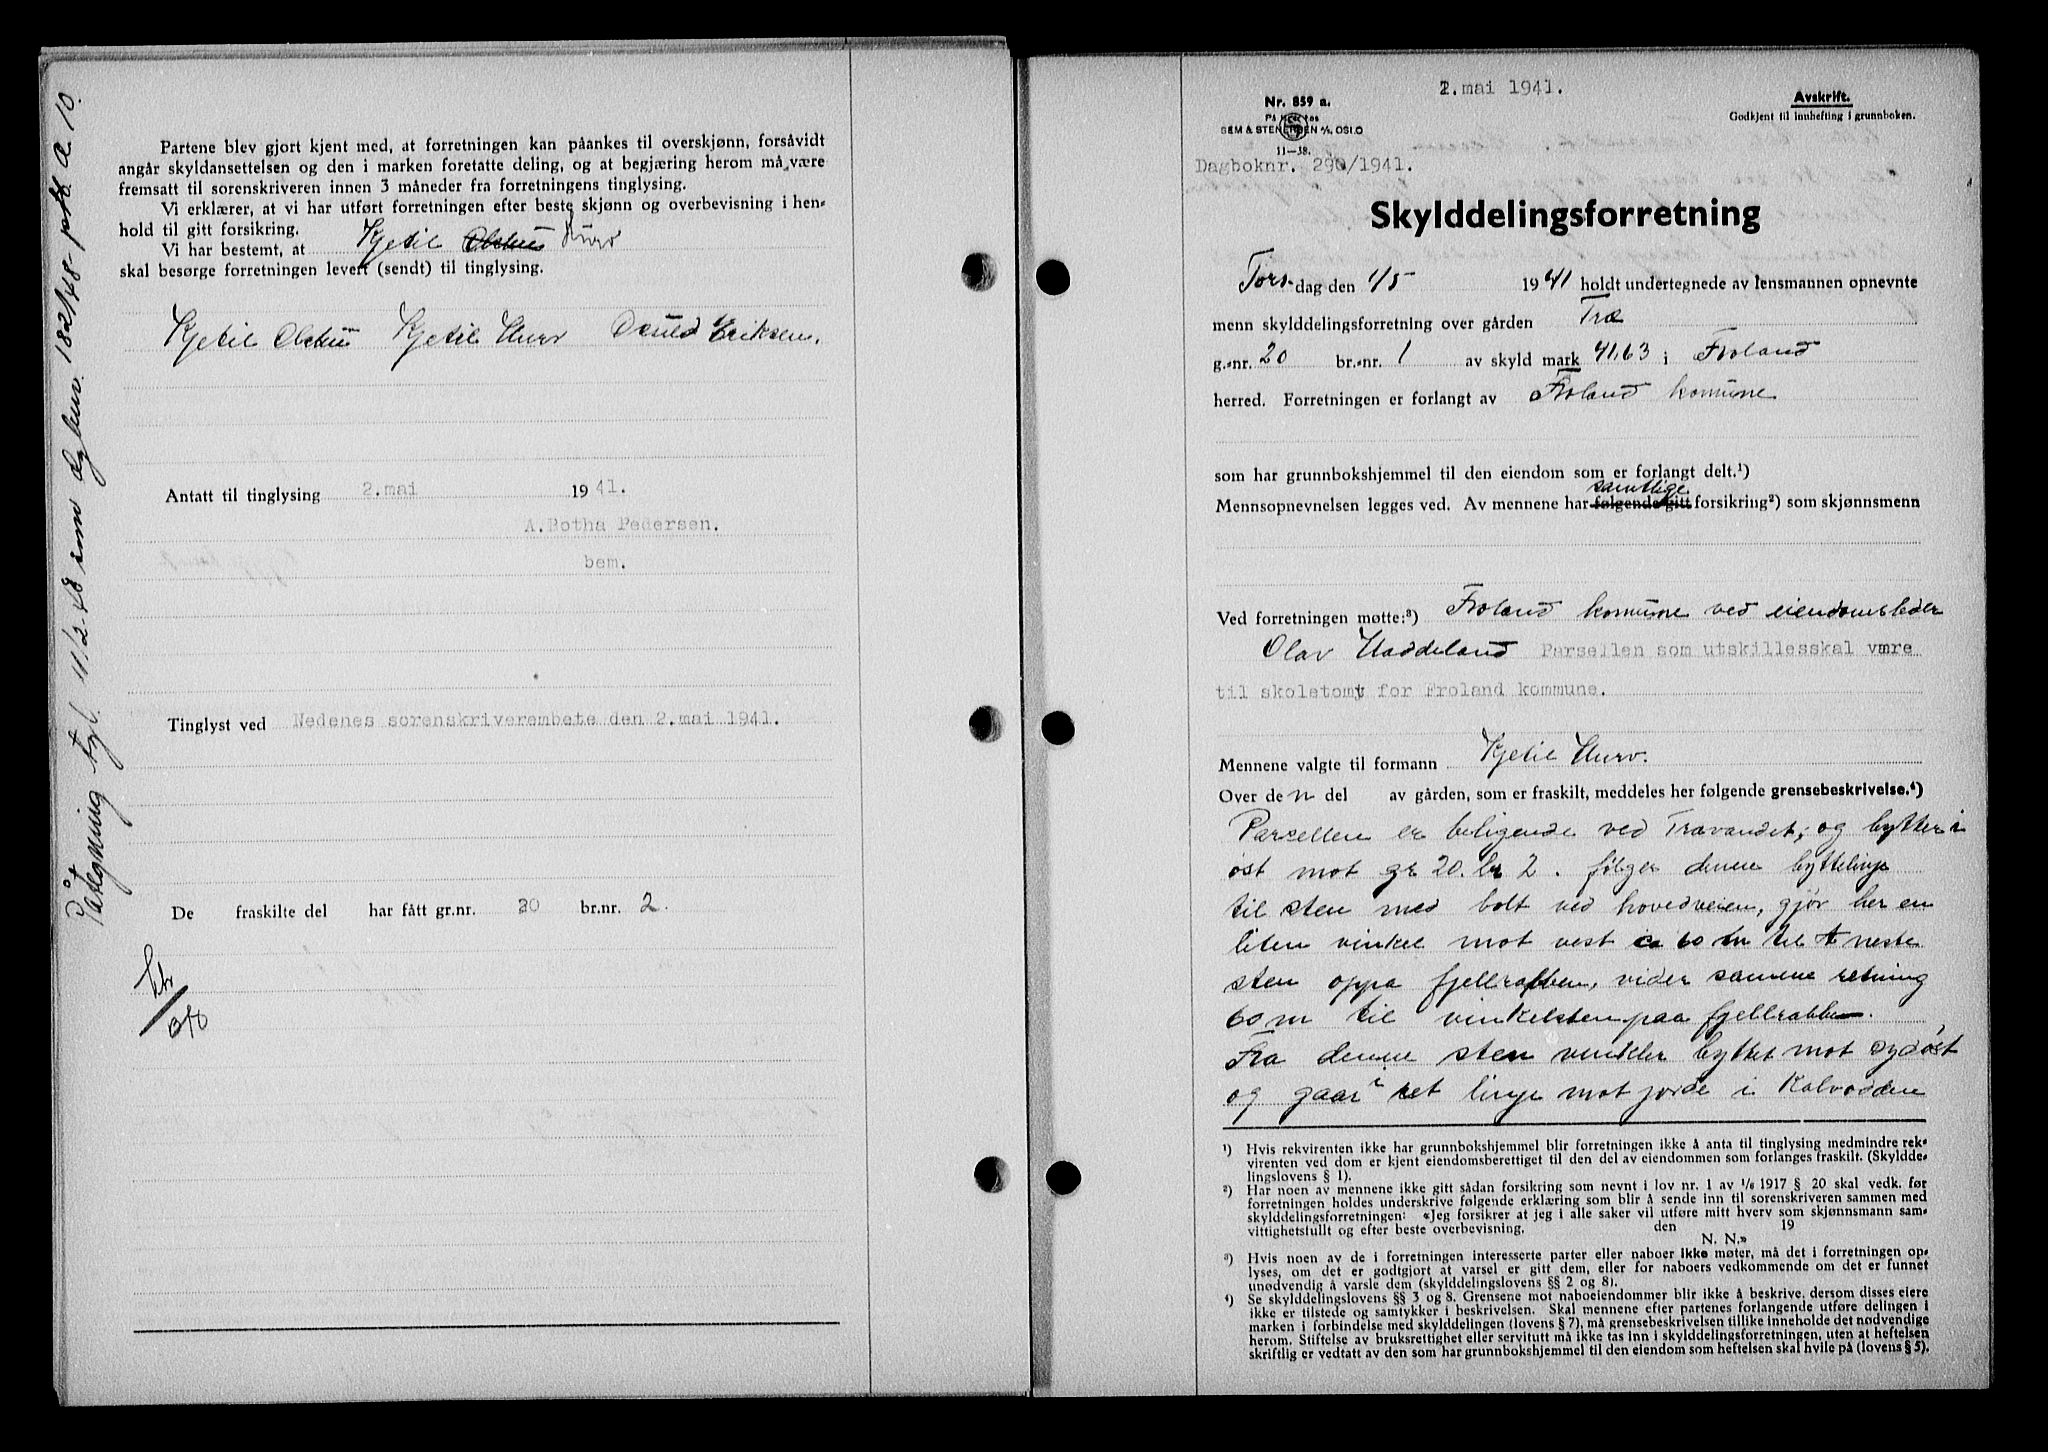 Partene blev gjort kjent med, at forretningen kan påankes til overskjønn, forsåvidt
angår skyldansettelsen og den i marken foretatte deling, og at begjæring herom må være
fremsatt til sorenskriveren innen 3 måneder fra forretningens tinglysing.
Vi erklærer, at vi har utført forretningen efter beste skjønn og overbevisning i hen-
hold til gitt forsikring.
Vi har bestemt, at Kjetil Olstue Hurv
skal besørge forretningen levert (sendt) til tinglysing.
Kjetil Olstue Kjetil Hurv Daniel Eriksen.
Antatt til tinglysing 2.mai 1941.
A.Botha Pedersen.
bem.
Tinglyst ved Nedenes sorenskriverembete den 2.mai 1941.
De fraskilte del har fått gr.nr. 20 br.nr. 2.
Påtegning tgl. 11/2-48 som dagbnr. 182/48- prot. A. 10.
2. mai 1941.
Nr. 859 a.
På
SEM & STENERSEN A/S, OSLO
11-38.
Avskrift.
Godkjent til innhefting i grunnboken.
Dagboknr. 290/1941.
Skylddelingsforretning
Tors dag den 1/5 1941 holdt undertegnede av lensmannen opnevnte
menn skylddelingsforretning over gården Træ
g.-nr. 20 br.-nr. 1 av skyld mark 41,63 i Froland
herred. Forretningen er forlangt av Froland komune
som har grunnbokshjemmel til den eiendom som er forlangt delt.¹)
samtlige
Mennsopnevnelsen legges ved. Av mennene har følgende gitt forsikring²) som skjønnsmenn
Ved forretningen møtte:³) Froland komune ved eiendomsleder
Olav Haddeland Parsellen som utskillesskal være
til skoletomt for Froland kommune.
Mennene valgte til formann Kjetil Hurv.
Over den del av gården, som er fraskilt, meddeles her følgende grensebeskrivelse.⁴)
Parsellen er beligende ved Trævandet, og bytter i
øst mot gr 20. br 2. følger denne byttelinje
til sten med bolt ved hovedveien, gjør her en
liten vinkel mot vest ca 60 m til neste
sten oppa fjellrabben, vider samme retning
60 m til vinkelsten paa fjellrabben.
Fra denne sten vinkler byttet mot sydøst
og gaar i ret linje mot jorde i Kalvodden
¹) Hvis rekvirenten ikke har grunnbokshjemmel blir forretningen ikke å anta til tinglysing medmindre rek-
virenten ved dom er kjent eiendomsberettiget til den del av eiendommen som forlanges fraskilt. (Skyldde-
lingslovens § 1).
²) Har noen av mennene ikke gitt sådan forsikring som nevnt i lov nr. 1 av 1/6 1917 § 20 skal vedk. før
forretningen holdes underskrive følgende erklæring som blir å sende inn til sorenskriveren sammen med
skylddelingsforretningen: «Jeg forsikrer at jeg i alle saker vil utføre mitt hverv som skjønnsmann sam-
vittighetsfullt og efter beste overbevisning. den 19
N. N.»
³) Hvis noen av de i forretningen interesserte parter eller naboer ikke møter, må det i forretningen op-
lyses, om det er godtgjort at varsel er gitt dem, eller for naboers vedkommende om det er funnet
unødvendig å varsle dem (skylddelingslovens §§ 2 og 8).
⁴) Se skylddelingslovens §§ 3 og 8. Grensene mot naboeiendommer blir ikke å beskrive, dersom disses eiere
ikke er tilstede og samtykker i beskrivelsen. Skal mennene efter partenes forlangende utføre delingen i
marken i forbindelse med skylddelingen (lovens § 7), må grensebeskrivelsen tillike inneholde det nødvendige
herom. Stiftelse av bruksrettighet eller servitutt må ikke tas inn i skylddelingsforretningen, uten at heftelsen
skriftlig er vedtatt av den som har grunnbokshjemmel til den eiendom som heftelsen skal hvile på (lovens § 5).